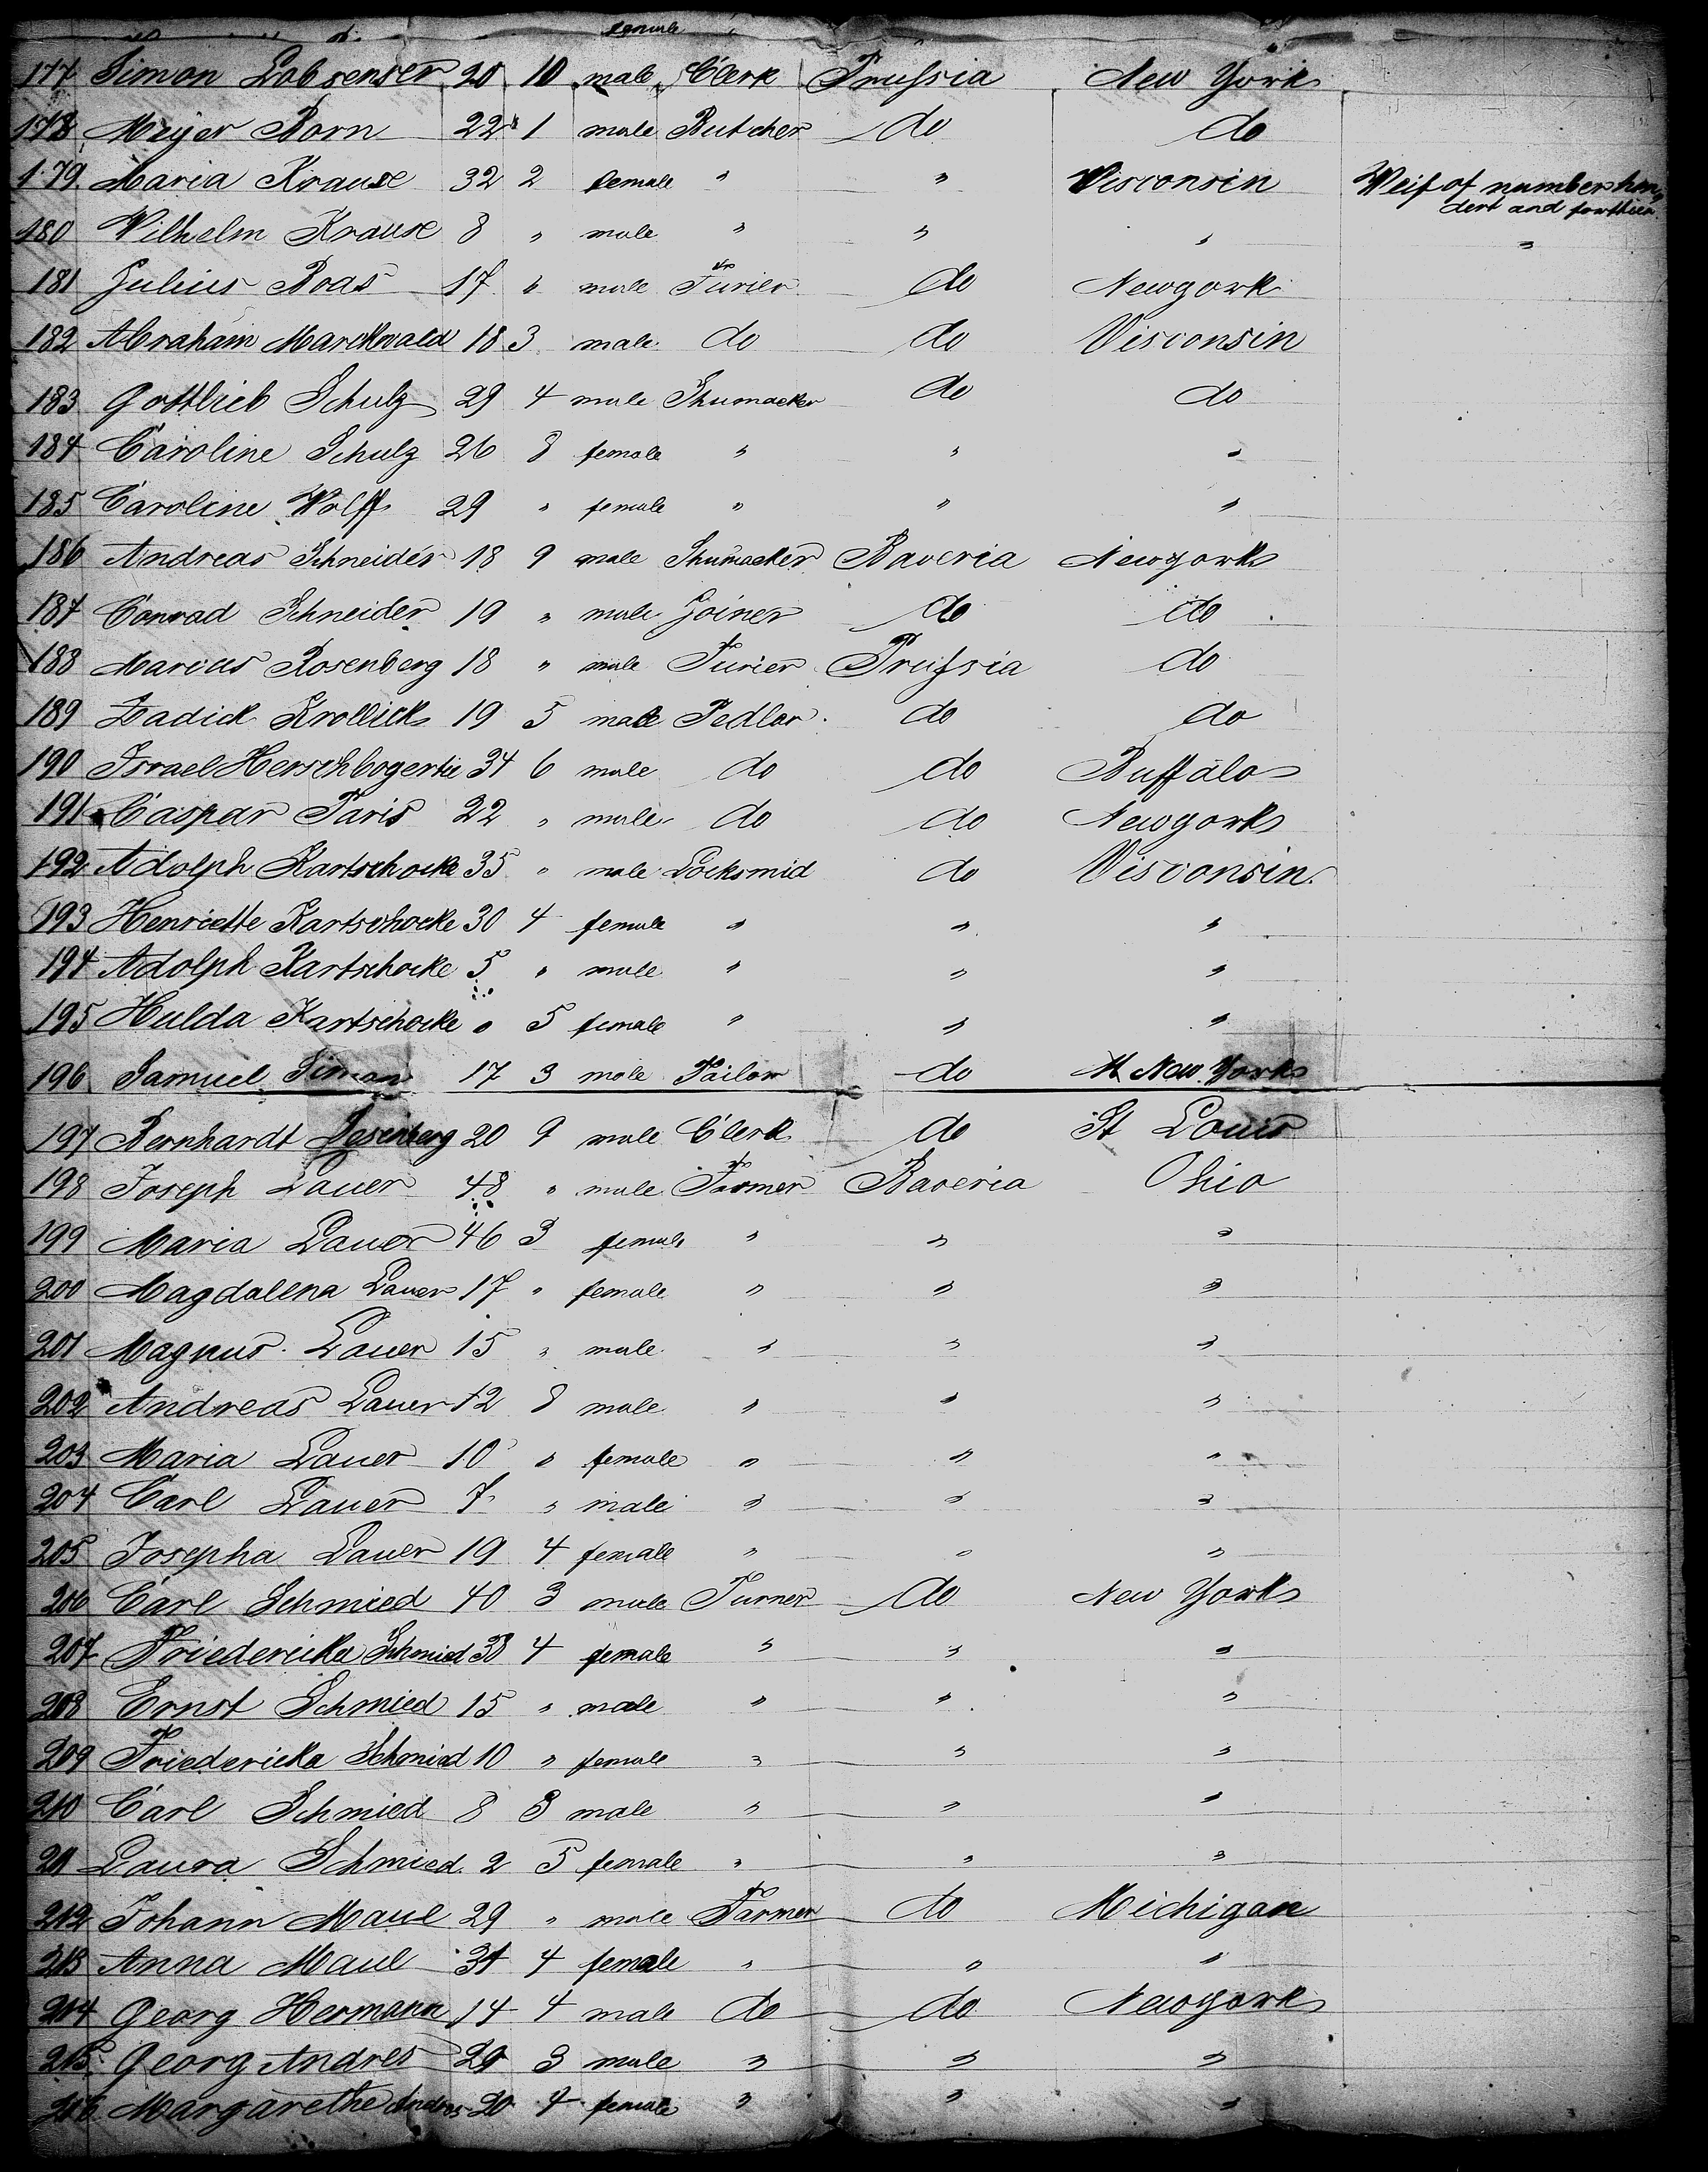 female
177 Simon Lobsenser 20 10 male Clerk Prussia New York
178 Meyer Born 22 1 male Butcher do do
179 Maria Krause 32 2 female " " Visconsin Weif of number hun
dert and forthien
180 Vilhelm Krause 8 " male " " " "
181 Julius Boas 17 " male Turier do Newyork
182 Abraham Marckwald 18 3 male do do Visconsin
183 Gottlieb Schulz 29 4 male Shumacker do do
184 Caroline Schulz 26 8 female " " "
185 Caroline Wolff 29 " female " " "
186 Andreas Schneider 18 9 male Shumacker Baveria Newyork
187 Conrad Schneider 19 " male Joiner do do
188 Marcus Rosenberg 18 " male Turier Prussia do
189 Zadick Krollick 19 5 male Pedlar do do
190 Israel Herschbogertie 34 6 male do do Buffalo
191 Caspar Paris 22 " male do do Newyork
192 Adolph Kartschocke 35 " male Locksmid do Visconsin
193 Henriette Kartschocke 30 4 female " " "
194 Adolph Kartschocke 5 " male " " "
195 Hulda Kartschocke " 5 female " " "
196 Samuel Simon 17 3 male Tailor do New York
197 Bernhardt 20 9 male Clerk do St Louis
198 Joseph Lauer 48 " male Farmer Baveria Ohio
199 Maria Lauer 46 3 female " " "
200 Magdalena Lauer 17 " female " " "
201 Magnus Lauer 15 " male " " "
202 Andreas Lauer 12 8 male " " "
203 Maria Lauer 10 " female " " "
204 Carl Lauer 7 " male " " "
205 Josepha Lauer 19 4 female " " "
206 Carl Schmied 40 3 male Turner do New York
207 Friedericka Schmied 38 4 female " " "
208 Ernst Schmied 15 " male " " "
209 Friedericka Schmied 10 " female " " "
210 Carl Schmied 8 3 male " " "
211 Laura Schmied 2 5 female " " "
212 Johann Maul 29 " male Farmer do Michigan
213 Anna Maul 31 4 female " " "
214 Georg Hermann 14 4 male do do Newyork
215 Georg Andres 29 3 male " " "
216 Margarethe Andres 20 4 female " " "